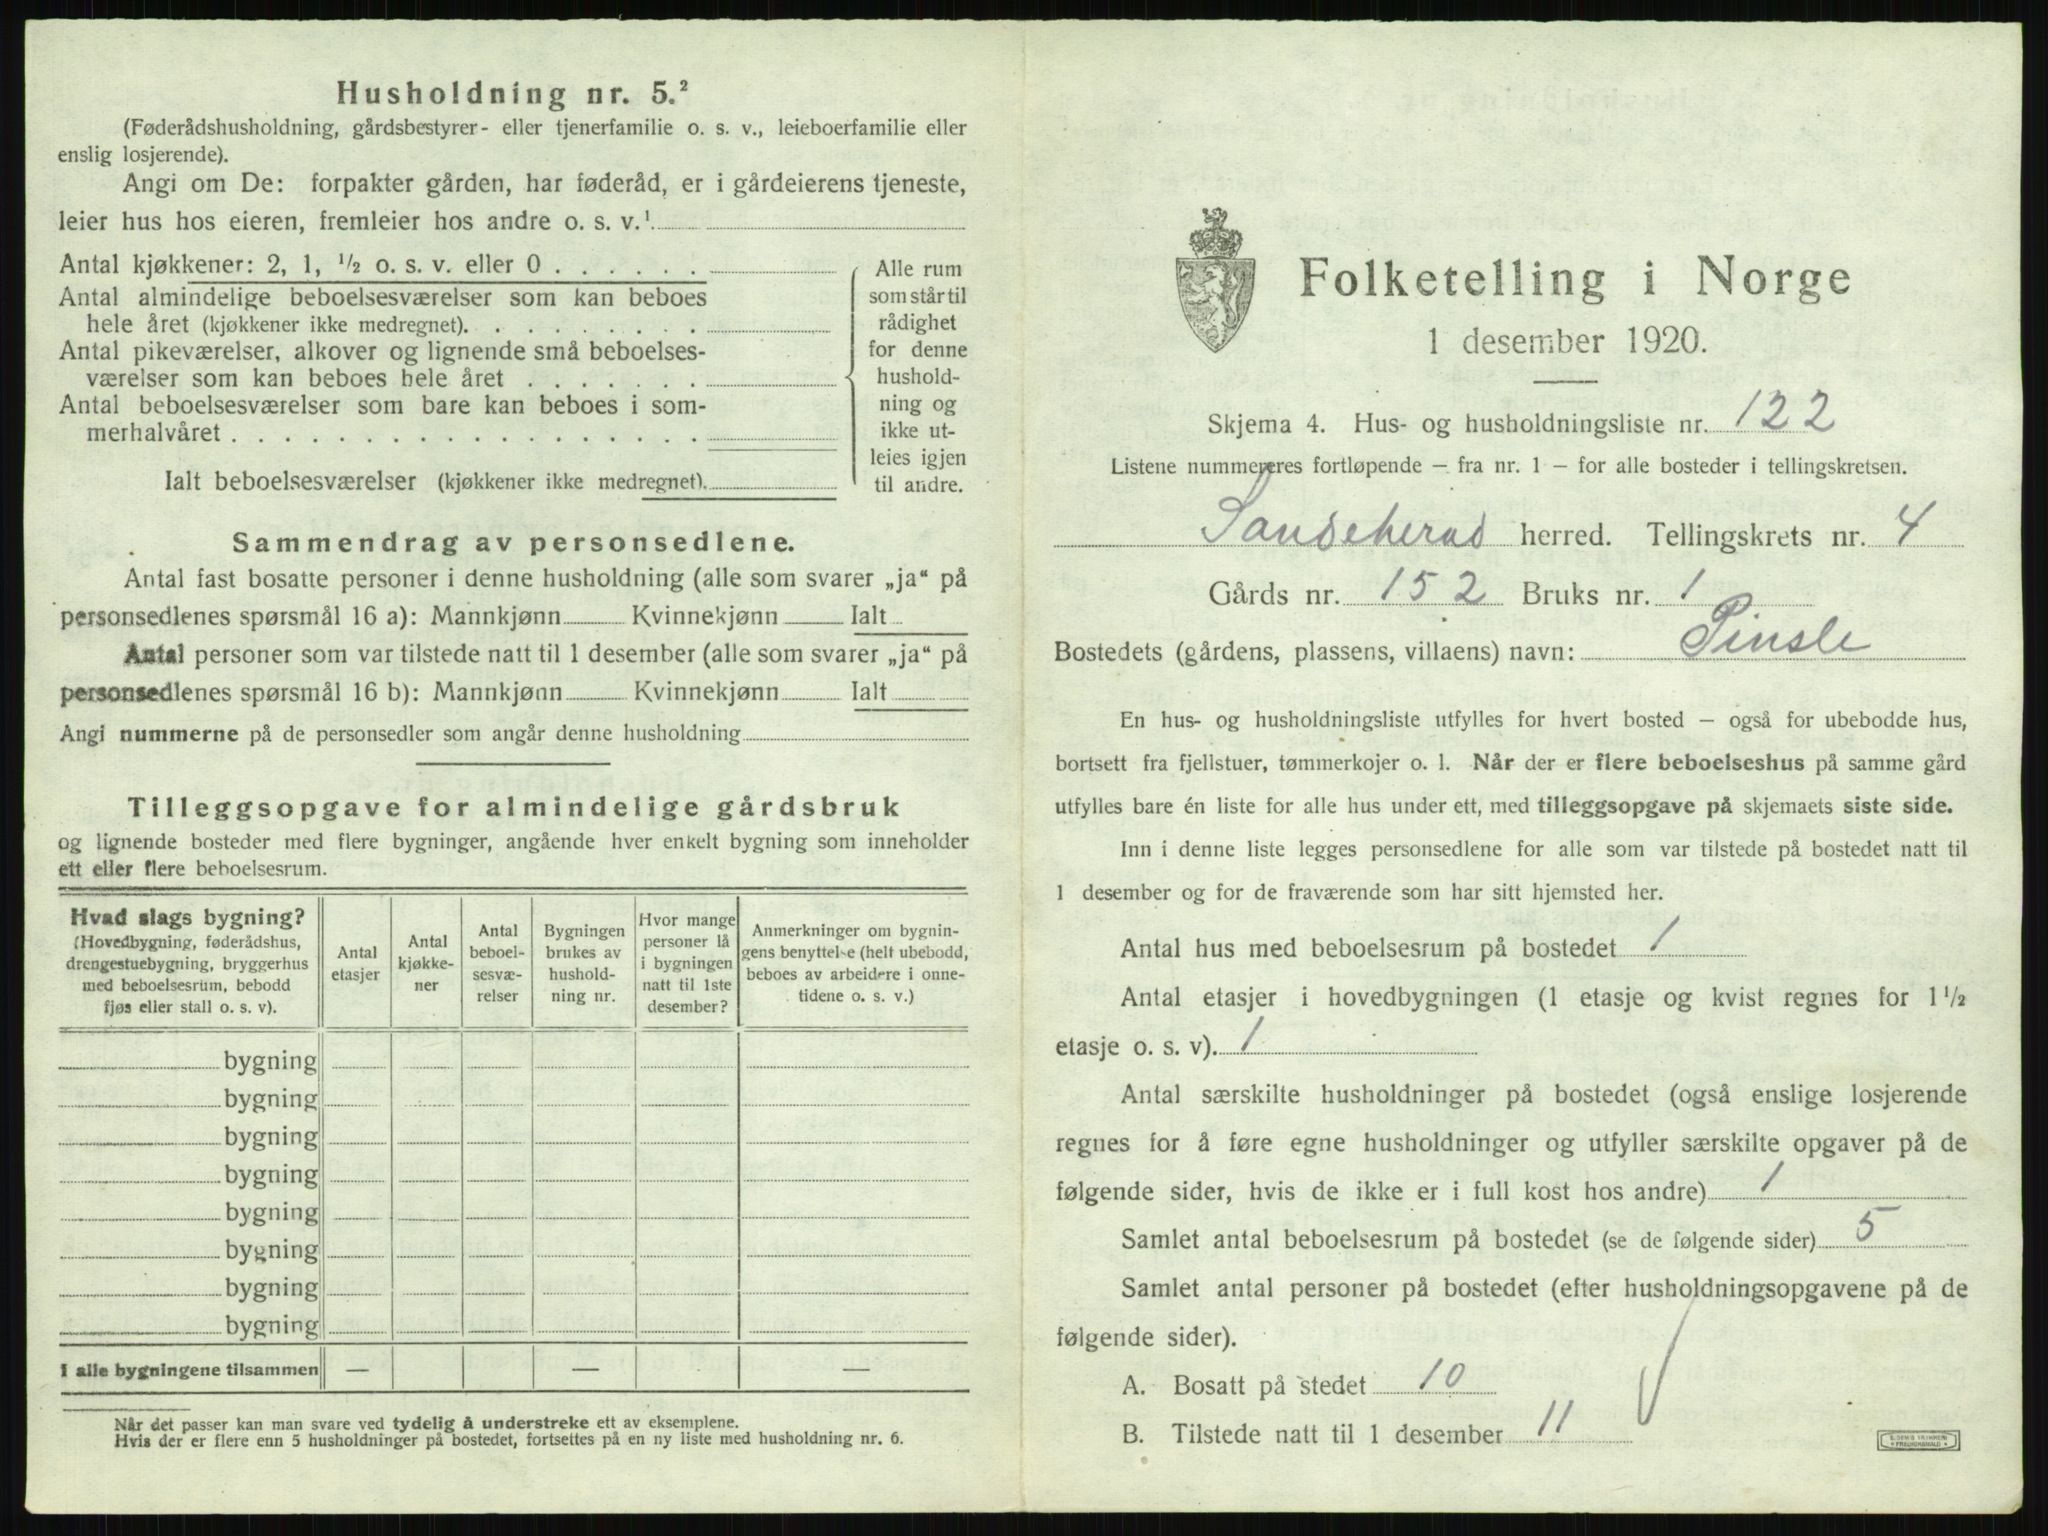 Husholdning nr. 5.²
(Føderådshusholdning, gårdsbestyrer- eller tjenerfamilie o. s. v., leieboerfamilie eller
enslig losjerende).
Angi om De: forpakter gården, har føderåd, er i gårdeierens tjeneste,
leier hus hos eieren, fremleier hos andre o. s. v.¹
Antal kjøkkener: 2, 1, ½ o. s. v. eller 0 . . . . . .
Antal almindelige beboelsesværelser som kan beboes
hele året (kjøkkener ikke medregnet). . . . . . . . .
Antal pikeværelser, alkover og lignende små beboelses-
værelser som kan beboes hele året . . . . . . .
Antal beboelsesværelser som bare kan beboes i som-
merhalvåret . . . . . . . . . . . . . . . . . .
Ialt beboelsesværelser (kjøkkener ikke medregnet).
Alle rum
som står til
rådighet
for denne
hushold-
ning og
ikke ut-
leies igjen
til andre.
Sammendrag av personsedlene.
Antal fast bosatte personer i denne husholdning (alle som svarer „ja“ på
personsedlenes spørsmål 16 a): Mannkjønn Kvinnekjønn Ialt
Antal personer som var tilstede natt til 1 desember (alle som svarer „ja“ på
personsedlenes spørsmål 16 b): Mannkjønn Kvinnekjønn Ialt
Angi nummerne på de personsedler som angår denne husholdning
Tilleggsopgave for almindelige gårdsbruk
og lignende bosteder med flere bygninger, angående hver enkelt bygning som inneholder
ett eller flere beboelsesrum.
Hvad slags bygning?
(Hovedbygning, føderådshus,
drengestuebygning, bryggerhus
med beboelsesrum, bebodd
fjøs eller stall o. s. v).
Antal
etasjer
Antal
kjøkke-
ner
Antal
beboel-
sesvæ-
relser
Bygningen
brukes av
hushold-
ning nr.
Hvor mange
personer lå
i bygningen
natt til 1ste
desember?
Anmerkninger om bygnin-
gens benyttelse (helt ubebodd,
beboes av arbeidere i onne-
tidene o. s. v.)
bygning
bygning
bygning
bygning
bygning
bygning
bygning
bygning
I alle bygningene tilsammen — — —
Når det passer kan man svare ved tydelig å understreke ett av eksemplene.
Hvis der er flere enn 5 husholdninger på bostedet, fortsettes på en ny liste med husholdning nr. 6.
Folketelling i Norge
1 desember 1920.
Skjema 4. Hus- og husholdningsliste nr. 122
Listene nummereres fortløpende – fra nr. 1 – for alle bosteder i tellingskretsen.
Sandeherad herred. Tellingskrets nr. 4
Gårds nr. 152 Bruks nr. 1
Bostedets (gårdens, plassens, villaens) navn: Pinsle
En hus- og husholdningsliste utfylles for hvert bosted – også for ubebodde hus,
bortsett fra fjellstuer, tømmerkojer o. l. Når der er flere beboelseshus på samme gård
utfylles bare én liste for alle hus under ett, med tilleggsopgave på skjemaets siste side.
Inn i denne liste legges personsedlene for alle som var tilstede på bostedet natt til
1 desember og for de fraværende som har sitt hjemsted her.
Antal hus med beboelsesrum på bostedet 1
Antal etasjer i hovedbygningen (1 etasje og kvist regnes for 1 ½
etasje o. s. v). 1
Antal særskilte husholdninger på bostedet (også enslige losjerende
regnes for å føre egne husholdninger og utfyller særskilte opgaver på de
følgende sider, hvis de ikke er i full kost hos andre) 1
Samlet antal beboelsesrum på bostedet (se de følgende sider) 5
Samlet antal personer på bostedet (efter husholdningsopgavene på de
følgende sider).
A. Bosatt på stedet 10
B. Tilstede natt til 1 desember 11